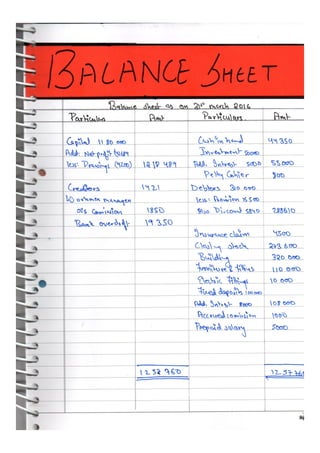 BALANCE SHEET
Balance sheet as on 31st march 2016
Particulars Amt Particulars. Amt
Capital 1180 000 Cash in hand 44350
Add: Net profit Investment 50000
less: Drawings 1235 489 Add: Intrest 5000 55000
Petty Cashier 800
Creditors 1421 Debtors 310 000
less: 15500
O/s Comission 1850 Discount 5890 288610
Bank overdraft 19 350
Insurance claim 4500
Closing stock 273 500
Building 320 000
Furniture & fittings 110 000
Electric fittings 10 000
Fixed deposits 100000
Add: Intrest 8000 108 000
Accrued comission 1000
Prepaid salary 5000
1257760